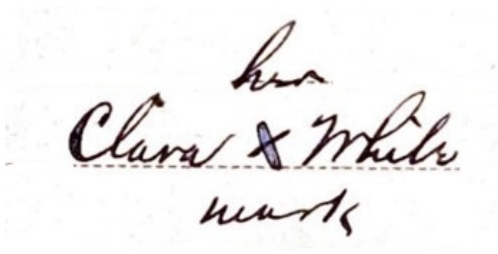 her
Clara X White
mark